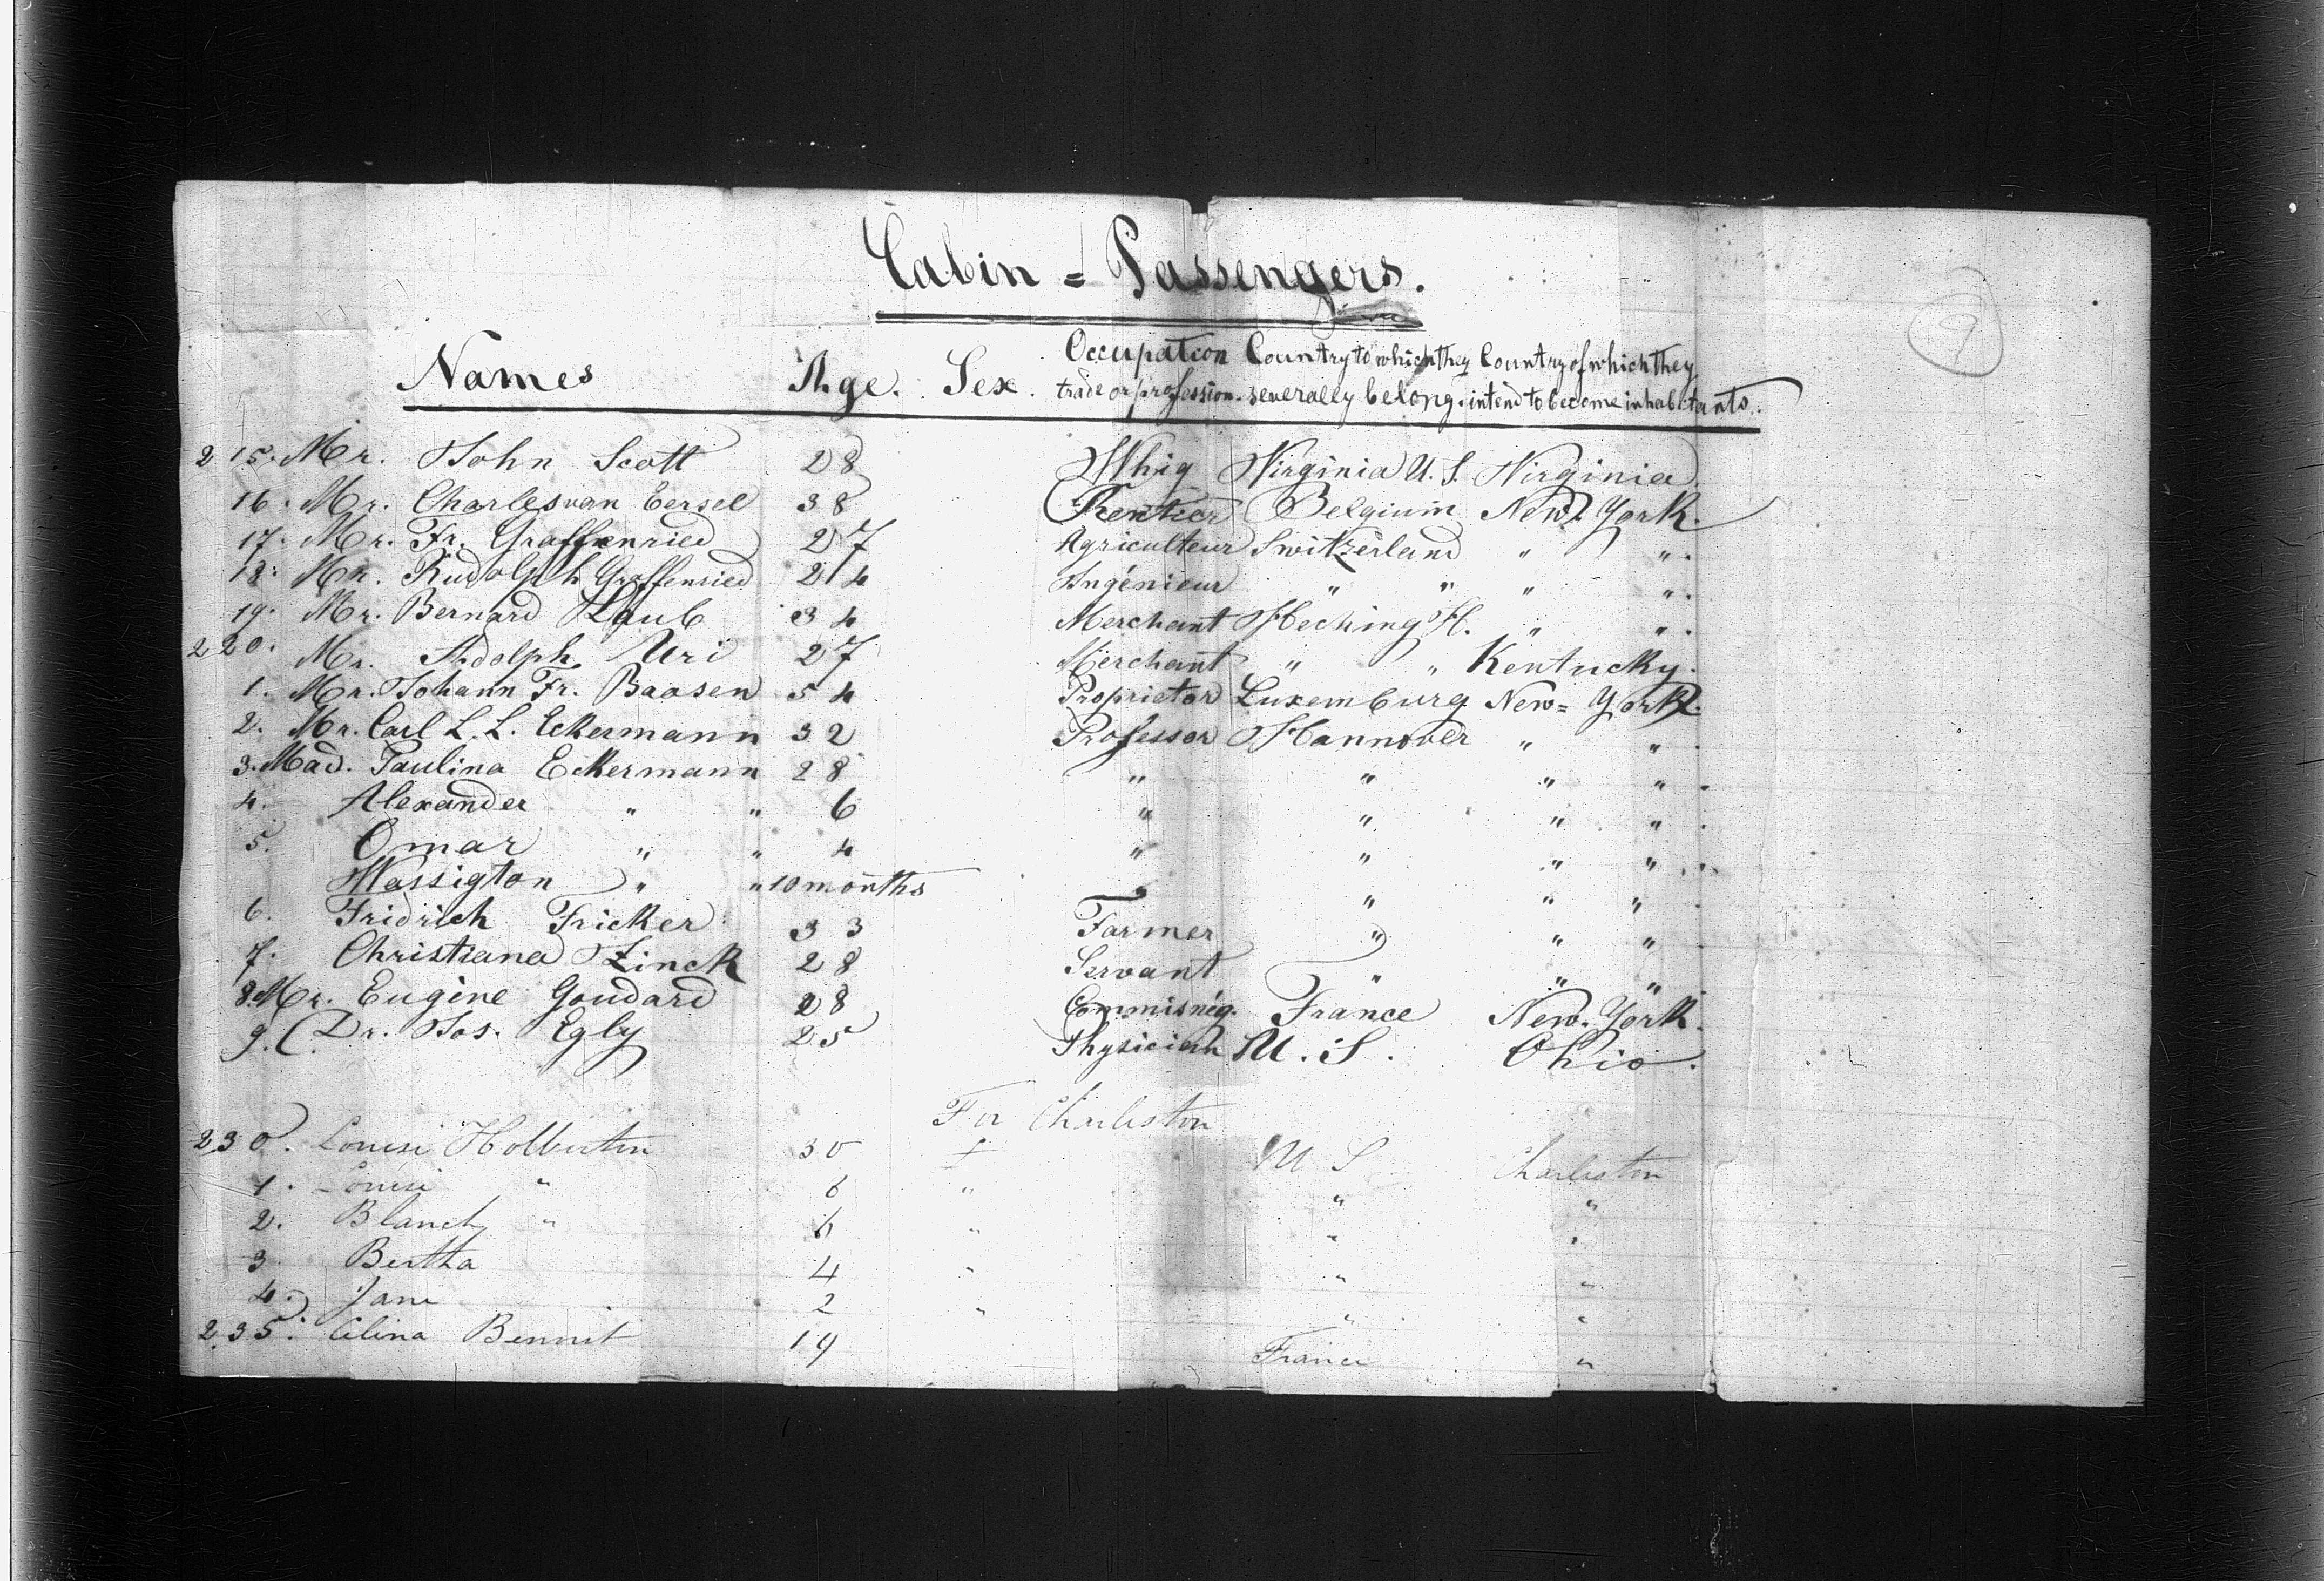 Cabin = Passengers.
9
Names Age. Sex. Occupation trade or profession. Country to which they severally belong. Country of which they intend to become inhabitants.
215. Mr. John Scott 28 Whig Virginia U.S. Virginia.
16. Mr. Charles van Eersel 38 Rentier Belgium New York.
17. Mr. Fr. Graffenried 27 Agriculteur Switzerland " ".
18. Mr. Rudolph Graffenried 24 Ingénieur " " " ".
19. Mr. Bernard Laub 34 Merchant Heching H. " ".
220. Mr. Adolph Uri 27 Merchant " " Kentucky.
1. Mr. Johann Fr. Baasen 54 Proprietor Luxemburg New=York.
2. Mr. Carl L. L. Eckermann 32 Professor Hannover " ".
3. Mad. Paulina Eckermann 28 " " " ".
4. Alexander " " 6 " " " ".
5. Omar " " 4 " " " ".
Wassigton " " 10 months " " " ".
6. Fridrich Fricker 33 Farmer " " "
7. Christiana Zinck 28 Servant " " "
8. Mr. Eugène Goudard 28 Commisnég. France New-York.
9. (Dr. Jos. Egly 25 Physician U.S. Ohio.
For Charleston
230. Louise Holberton 30 f U S Charleston
1. Louise " 8 " " "
2. Blanch " 6 " " "
3. Bertha 4 " " "
4. Jane 2 " " "
235. Celina Bennit 19 France "